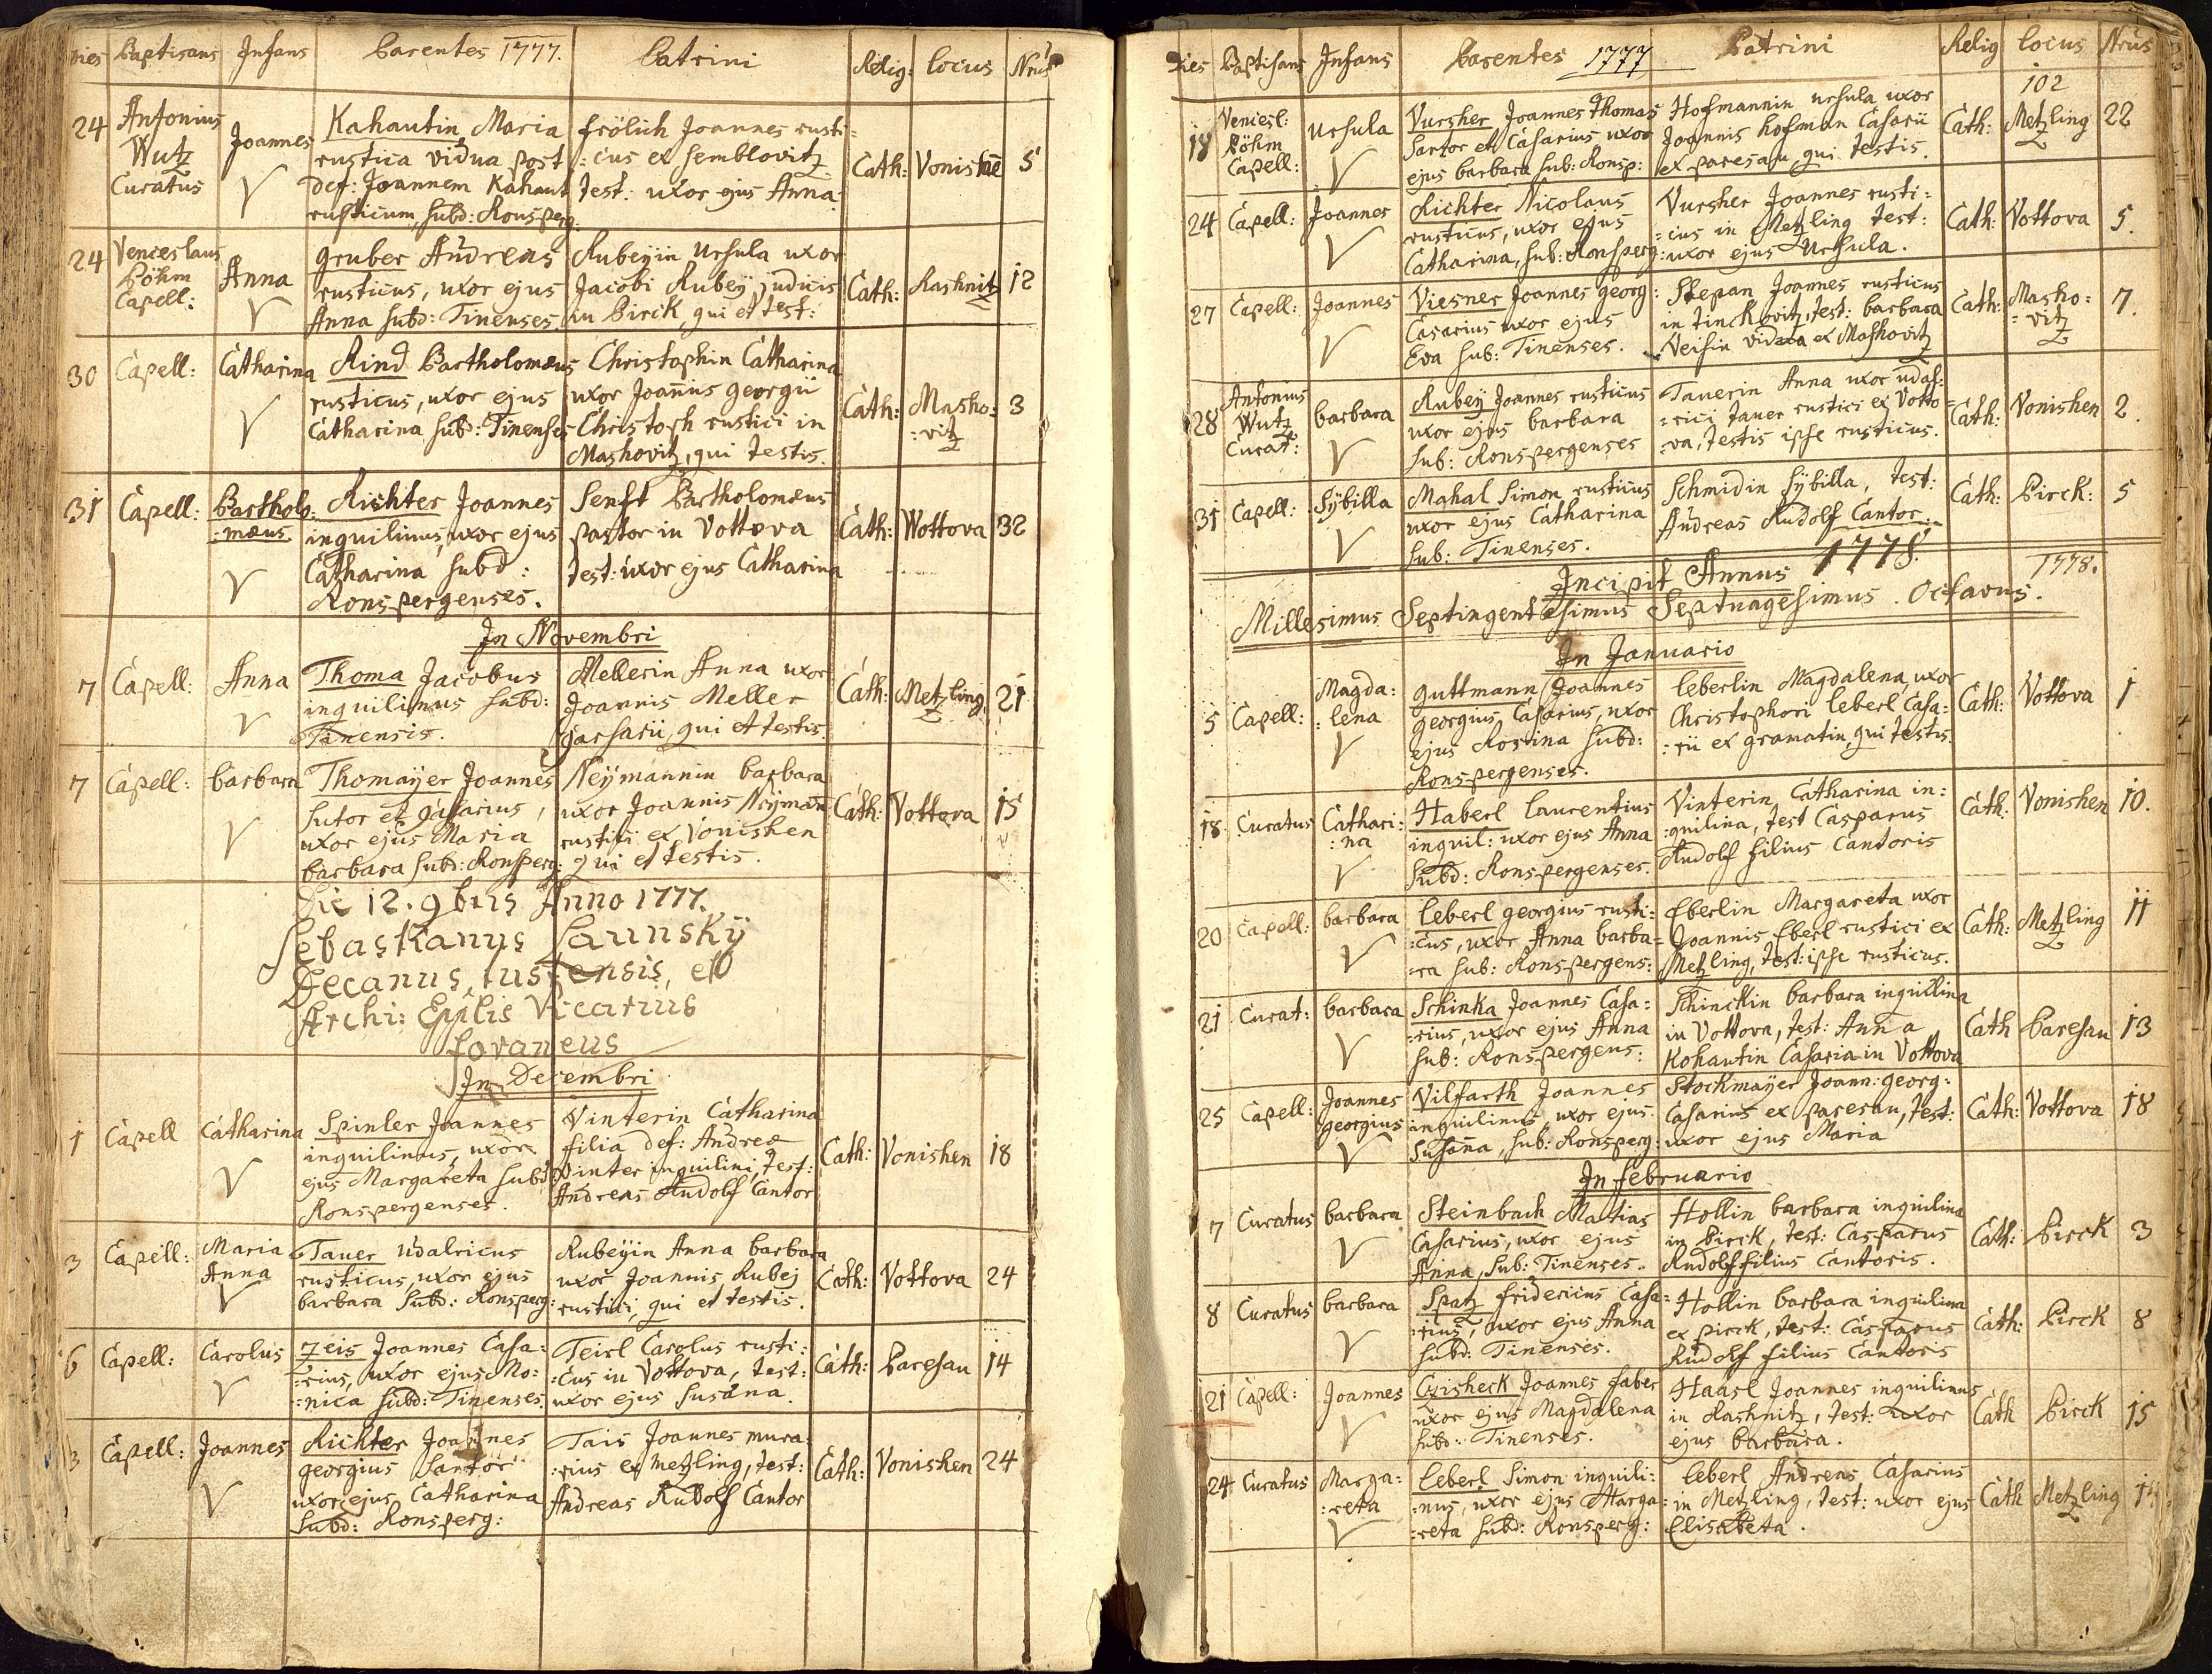 Dies Baptisans Infans Parentes 1777. Patrini Relig: Locus Nrus
24 Antonius Wutz Curatus Joannes Kahautin Maria frölich Joannes rusti= Cath: Vonishe 5
rustica vidua post :cus ex Semblovitz
def: Joannem Kahaut test: uxor ejus Anna.
rusticum, subd: Ronsperg:
24 Venceslaus Böhm Capell: Anna Gruber Andreas Rubeyin Ursula uxor Cath: Rashnitz 12
rusticus, uxor ejus Jacobi Rubey judicis
Anna subd: Tinenses in Pirck, qui et test:
30 Capell: Catharina Rind Bartholomæus Christophin Catharina Cath: Masho:vitz 3
rusticus, uxor ejus uxor Joannis georgii
Catharina subd: Tinenses Christoph rustici in
Mashovitz, qui testis.
31 Capell: Bartholo:mæus Richter Joannes Senft Bartholomæus Cath: Wottova 32
inquilinus, uxor ejus pastor in Vottova
Catharina subd: test: uxor ejus Catharina
Ronspergenses.
In Novembri
7 Capell: Anna Thoma Jacobus Mellerin Anna uxor Cath: Metzling 21
inquilinus subd: Joannis Meller
Tinensis. Casarii, qui et testis.
7 Capell: barbara Thomayer Joannes Neymannin barbara Cath: Vottova 15
Sutor et Casarius, uxor Joannis Neyman
uxor ejus Maria rustici ex Vonishen
barbara subd: Ronsperg: qui et testis.
Die 12. 9bris Anno 1777.
Decanus, et
Archi: Epplis Vicarius
foraneus
In Decembri
1 Capell Catharina Spinler Joannes Vinterin Catharina Cath: Vonishen 18
inquilinus, uxor filia def: Andreæ
ejus Margareta subd: Vinter inquilini, test:
Ronspergenses. Andreas Rudolf Cantor
3 Capell: Maria Anna Tauer Udalricus Rubeyin Anna barbara Cath: Vottova 24
rusticus, uxor ejus uxor Joannis Rubej
barbara subd: Ronsperg: rustici, qui et testis.
6 Capell: Carolus Zeis Joannes Casa: Teirl Carolus rusti: Cath: Paresau 14
:rius, uxor ejus Mo: :cus in Vottova, test:
:nica subd: Tinenses. uxor ejus Susana.
Capell: Joannes Richter Joannes Tais Joannes mura: Cath: Vonishen 24
georgius Sartor :rius ex Metzling, test:
uxor ejus Catharina Andreas Rudolf Cantor
subd: Ronsperg:
Dies Baptisans Infans Parentes 1777 Patrini Relig Locus Nrus
102
18 Vencesl: Böhm Capell: Ursula Vursher Joannes Thomas Hofmannin Ursula uxor Cath: Metzling 22
Sartor et Casarius uxor Joannis Hofman Casarii
ejus barbara sub: Ronsp: ex paresau qui testis.
24 Capell: Joannes Richter Nicolaus Vursher Joannes rusti: Cath: Vottova 5.
rusticus, uxor ejus :cus in Metzling test:
Catharina, sub: Ronsperg: uxor ejus Ursula.
27 Capell: Joannes Viesner Joannes georg: Stepan Joannes rusticus Cath: Masho::vitz 7.
Casarius uxor ejus in tinckovitz, test: barbara
Eva sub: Tinenses. Veisin vidua ex Mashovitz
28 Antonius Wutz Curat: barbara Rubey Joannes rusticus Tauerin Anna uxor Udal: Cath: Vonishen 2.
uxor ejus barbara :rici Tauer rustici ex Votto=
sub: Ronspergenses :va, testis ipse rusticus.
31 Capell: Sybilla Mahal Simon rusticus Schmidin Sybilla, test: Cath: Pirck: 5
uxor ejus Catharina Andreas Rudolf Cantor
sub: Tinenses.
Incipit Annus 1778. 1778.
Millesimus Septingentesimus Septuagesimus Octavus.
In Januario
5 Capell: Magda::lena guttmann Joannes Leberlin Magdalena uxor Cath: Vottova 1
georgius, Casarius, uxor Christophori Leberl Casa:
ejus Rosina subd: :rii ex gramatin, qui testis.
Ronspergenses.
18 Curatus Cathari::na Haberl Laurentius Vinterin Catharina in: Cath: Vonishen 10.
inquil: uxor ejus Anna :quilina, test Casparus
subd: Ronspergenses. Rudolf filius Cantoris
20 Capell: barbara Leberl georgius rusti: Eberlin Margareta uxor Cath: Metzling 11
:cus, uxor Anna barba= Joannis Eberl rustici ex
:ra sub: Ronspergens: Metzling, test: ipse rusticus.
21 Curat: barbara Schinka Joannes Casa: Schinckin barbara inquilina Cath Paresau 13
:rius, uxor ejus Anna in Vottova, test: Anna
sub: Ronspergens: Kohautin Casaria in Vottova
25 Capell: Joannes georgius Vilfarth Joannes Stockmayer Joann: georg: Cath: Vottova 18
inquilinus, uxor ejus Casarius ex paresau, test:
Susana, sub: Ronsperg: uxor ejus Maria
In februario
7 Curatus barbara Steinbach Matias Hollin barbara inquilina Cath: Pirck 3
Casarius, uxor ejus in Pirck, test: Casparus
Anna, sub: Tinenses. Rudolf filius Cantoris.
8 Curatus barbara Spatz fridericus Casa= Hollin barbara inquilina Cath: Pirck 8
:rius, uxor ejus Anna ex pirck, test: Casparus
subd: Tinenses. Rudolf filius Cantoris
21 Capell: Joannes Czisheck Joannes faber Haasl Joannes inquilinus Cath Pirck 15
uxor ejus Magdalena in Rashnitz, test: uxor
subd: Tinenses. ejus barbara.
24 Curatus Marga::reta Leberl Simon inquili: Leberl Andreas Casarius Cath Metzling
:nus, uxor ejus Marga= :in Metzling, test: uxor ejus
:reta subd: Ronsperg: Elisabeta.